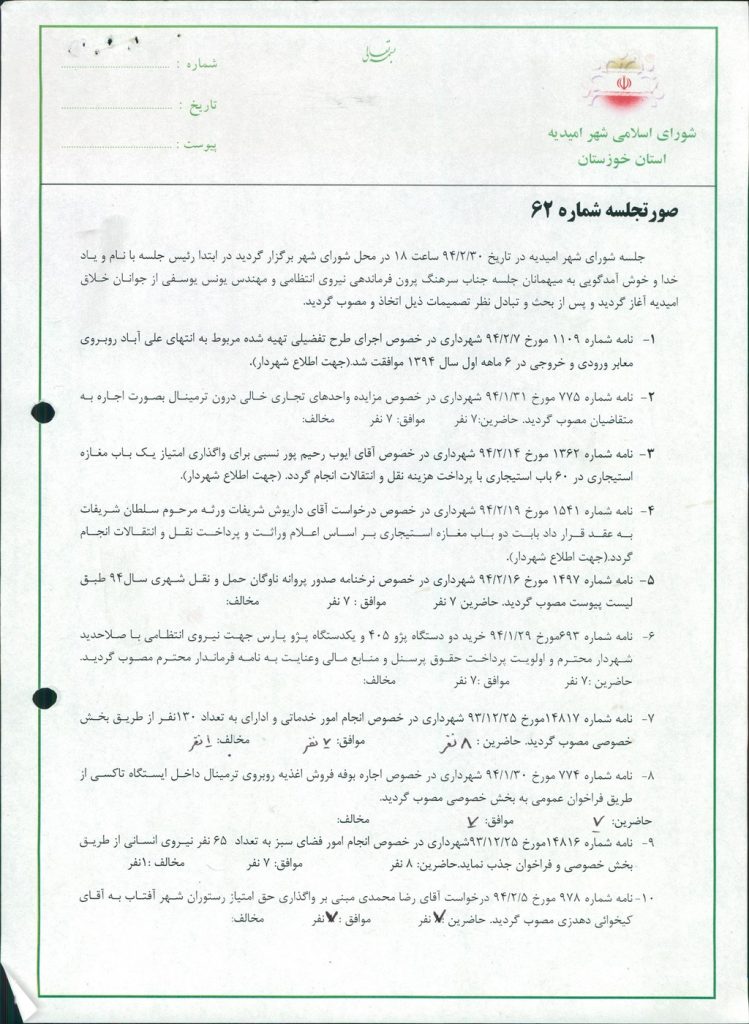 بسمه تعالی
شماره :
تاریخ :
پیوست :
شورای اسلامی شهر امیدیه
استان خوزستان
صورتجلسه شماره ۶۲
جلسه شورای شهر امیدیه در تاریخ ۹۴/۲/۳۰ ساعت ۱۸ در محل شورای شهر برگزار گردید در ابتدا رئیس جلسه با نام و یاد
خدا و خوش آمدگویی به میهمانان جلسه جناب سرهنگ پرون فرماندهی نیروی انتظامی و مهندس یونس یوسفی از جوانان خلاق
امیدیه آغاز گردید و پس از بحث و تبادل نظر تصمیمات ذیل اتخاذ و مصوب گردید.
۱- نامه شماره ۱۱۰۹ مورخ ۹۴/۲/۷ شهرداری در خصوص اجرای طرح تفضیلی تهیه شده مربوط به انتهای علی آباد روبروی
معابر ورودی و خروجی در ۶ ماهه اول سال ۱۳۹۴ موافقت شد.(جهت اطلاع شهردار).
۲- نامه شماره ۷۷۵ مورخ ۹۴/۱/۳۱ شهرداری در خصوص مزایده واحدهای تجاری خالی درون ترمینال بصورت اجاره به
متقاضیان مصوب گردید. حاضرین:۷ نفر موافق: ۷ نفر مخالف:
۳- نامه شماره ۱۳۶۲ مورخ ۹۴/۲/۱۴ شهرداری در خصوص آقای ایوب رحیم پور نسبی برای واگذاری امتیاز یک باب مغازه
استیجاری در ۶۰ باب استیجاری با پرداخت هزینه نقل و انتقالات انجام گردد. (جهت اطلاع شهردار).
۴- نامه شماره ۱۵۴۱ مورخ ۹۴/۲/۱۹ شهرداری در خصوص درخواست آقای داریوش شریفات ورثه مرحوم سلطان شریفات
به عقد قرار داد بابت دو باب مغازه استیجاری بر اساس اعلام وراثت و پرداخت نقل و انتقالات انجام
گردد.(جهت اطلاع شهردار).
۵- نامه شماره ۱۴۹۷ مورخ ۹۴/۲/۱۶ شهرداری در خصوص نرخنامه صدور پروانه ناوگان حمل و نقل شهری سال۹۴ طبق
لیست پیوست مصوب گردید. حاضرین ۷ نفر موافق : ۷ نفر مخالف:
۶- نامه شماره ۶۹۳مورخ ۹۴/۱/۲۹ خرید دو دستگاه پژو ۴۰۵ و یکدستگاه پژو پارس جهت نیروی انتظامی با صلاحدید
شهردار محترم و اولویت پرداخت حقوق پرسنل و منابع مالی وعنایت به نامه فرماندار محترم مصوب گردید.
حاضرین :۷ نفر موافق: ۷ نفر مخالف:
۷- نامه شماره ۱۴۸۱۷مورخ ۹۳/۱۲/۲۵ شهرداری در خصوص انجام امور خدماتی و ادارای به تعداد ۱۳۰نفر از طریق بخش
خصوصی مصوب گردید. حاضرین : ۸ نفر موافق: ۷ نفر مخالف: ۱ نفر
۸- نامه شماره ۷۷۴ مورخ ۹۴/۱/۳۰ شهرداری در خصوص اجاره بوفه فروش اغذیه روبروی ترمینال داخل ایستگاه تاکسی از
طریق فراخوان عمومی به بخش خصوصی مصوب گردید.
حاضرین: ۷ موافق: ۷ مخالف:
۹- نامه شماره ۱۴۸۱۶مورخ ۹۳/۱۲/۲۵شهرداری در خصوص انجام امور فضای سبز به تعداد ۶۵ نفر نیروی انسانی از طریق
بخش خصوصی و فراخوان جذب نماید.حاضرین: ۸ نفر موافق: ۷ نفر مخالف :۱نفر
۱۰- نامه شماره ۹۷۸ مورخ ۹۴/۲/۵ درخواست آقای رضا محمدی مبنی بر واگذاری حق امتیاز رستوران شهر آفتاب به آقای
کیخوائی دهدزی مصوب گردید. حاضرین :۷ نفر موافق :۷ نفر مخالف: